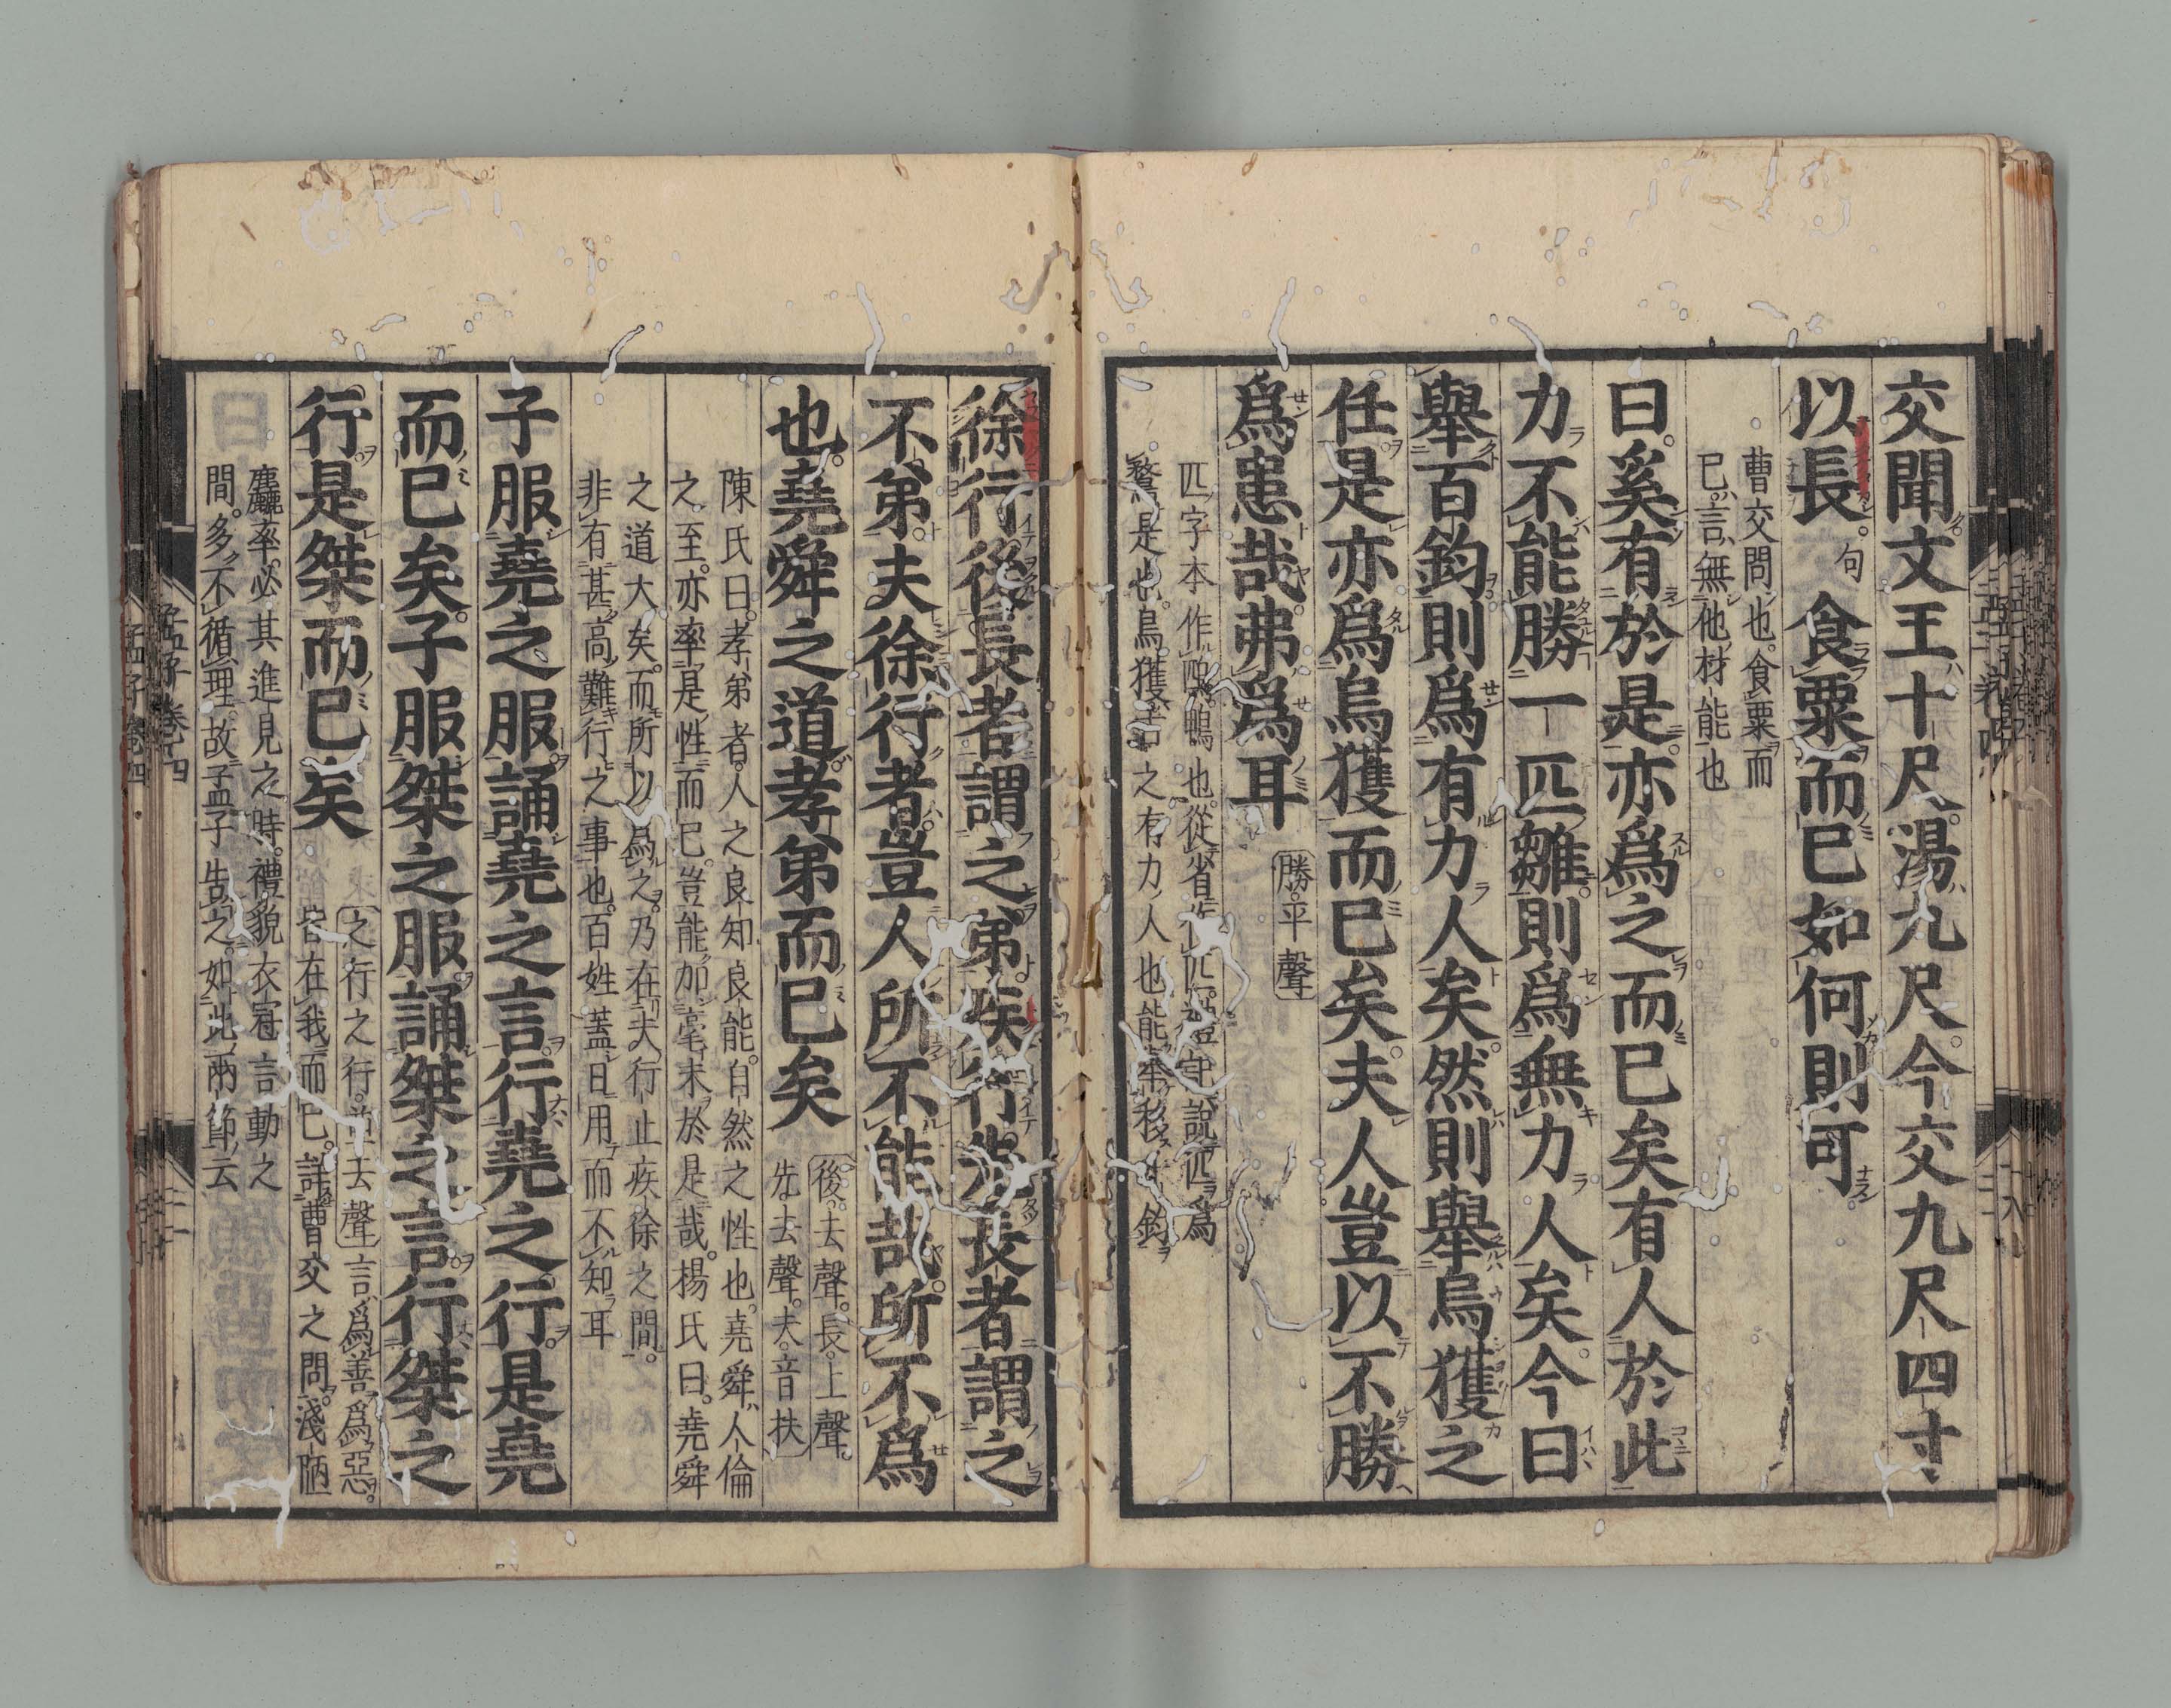 交聞文王十尺湯九尺今交九尺四寸
以長句食粟而已如何則可
曹交問也食粟而
已言無他材能也
曰奚有於是亦爲之而已矣有人於此
力不能勝一匹雛則爲無力人矣今曰
舉百鈞則爲有力人矣然則舉烏獲之
任是亦爲烏獲而已矣夫人豈以不勝
爲患哉弗爲耳
勝平聲
匹字本作鴄鴨也從省作匹禮記說匹爲
鶩是也烏獲古之有力人也能舉移千鈞
徐行後長者謂之弟疾行先長者謂之
不弟夫徐行者豈人所不能哉所不爲
也堯舜之道孝弟而已矣
後去聲長上聲
先去聲夫音扶
陳氏曰孝弟者人之良知良能自然之性也堯舜人倫
之至亦率是性而已豈能加毫末於是哉楊氏曰堯舜
之道大矣而所以爲之乃在夫行止疾徐之間
非有甚高難行之事也百姓蓋日用而不知耳
子服堯之服誦堯之言行堯之行是堯
而已矣子服桀之服誦桀之言行桀之
行是桀而已矣
之行之行並去聲言爲善爲惡
皆在我而已詳曹交之問淺陋
麤率必其進見之時禮貌衣冠言動之
間多不循理故孟子告之如此兩節云
孟子卷四